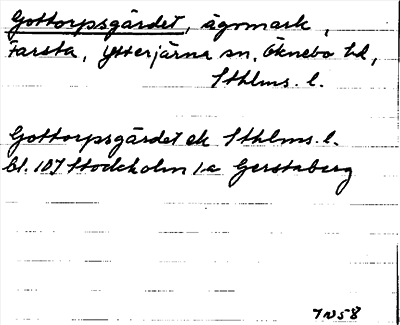 Gottorpsgärdet, ägomark,
Farsta, Ytterjärna sn, Öknebo hd,
Sthlms. l.
Gottorpsgärdet ek Sthlms. l.
bl. 107 Stockholm 1a Gerstaberg